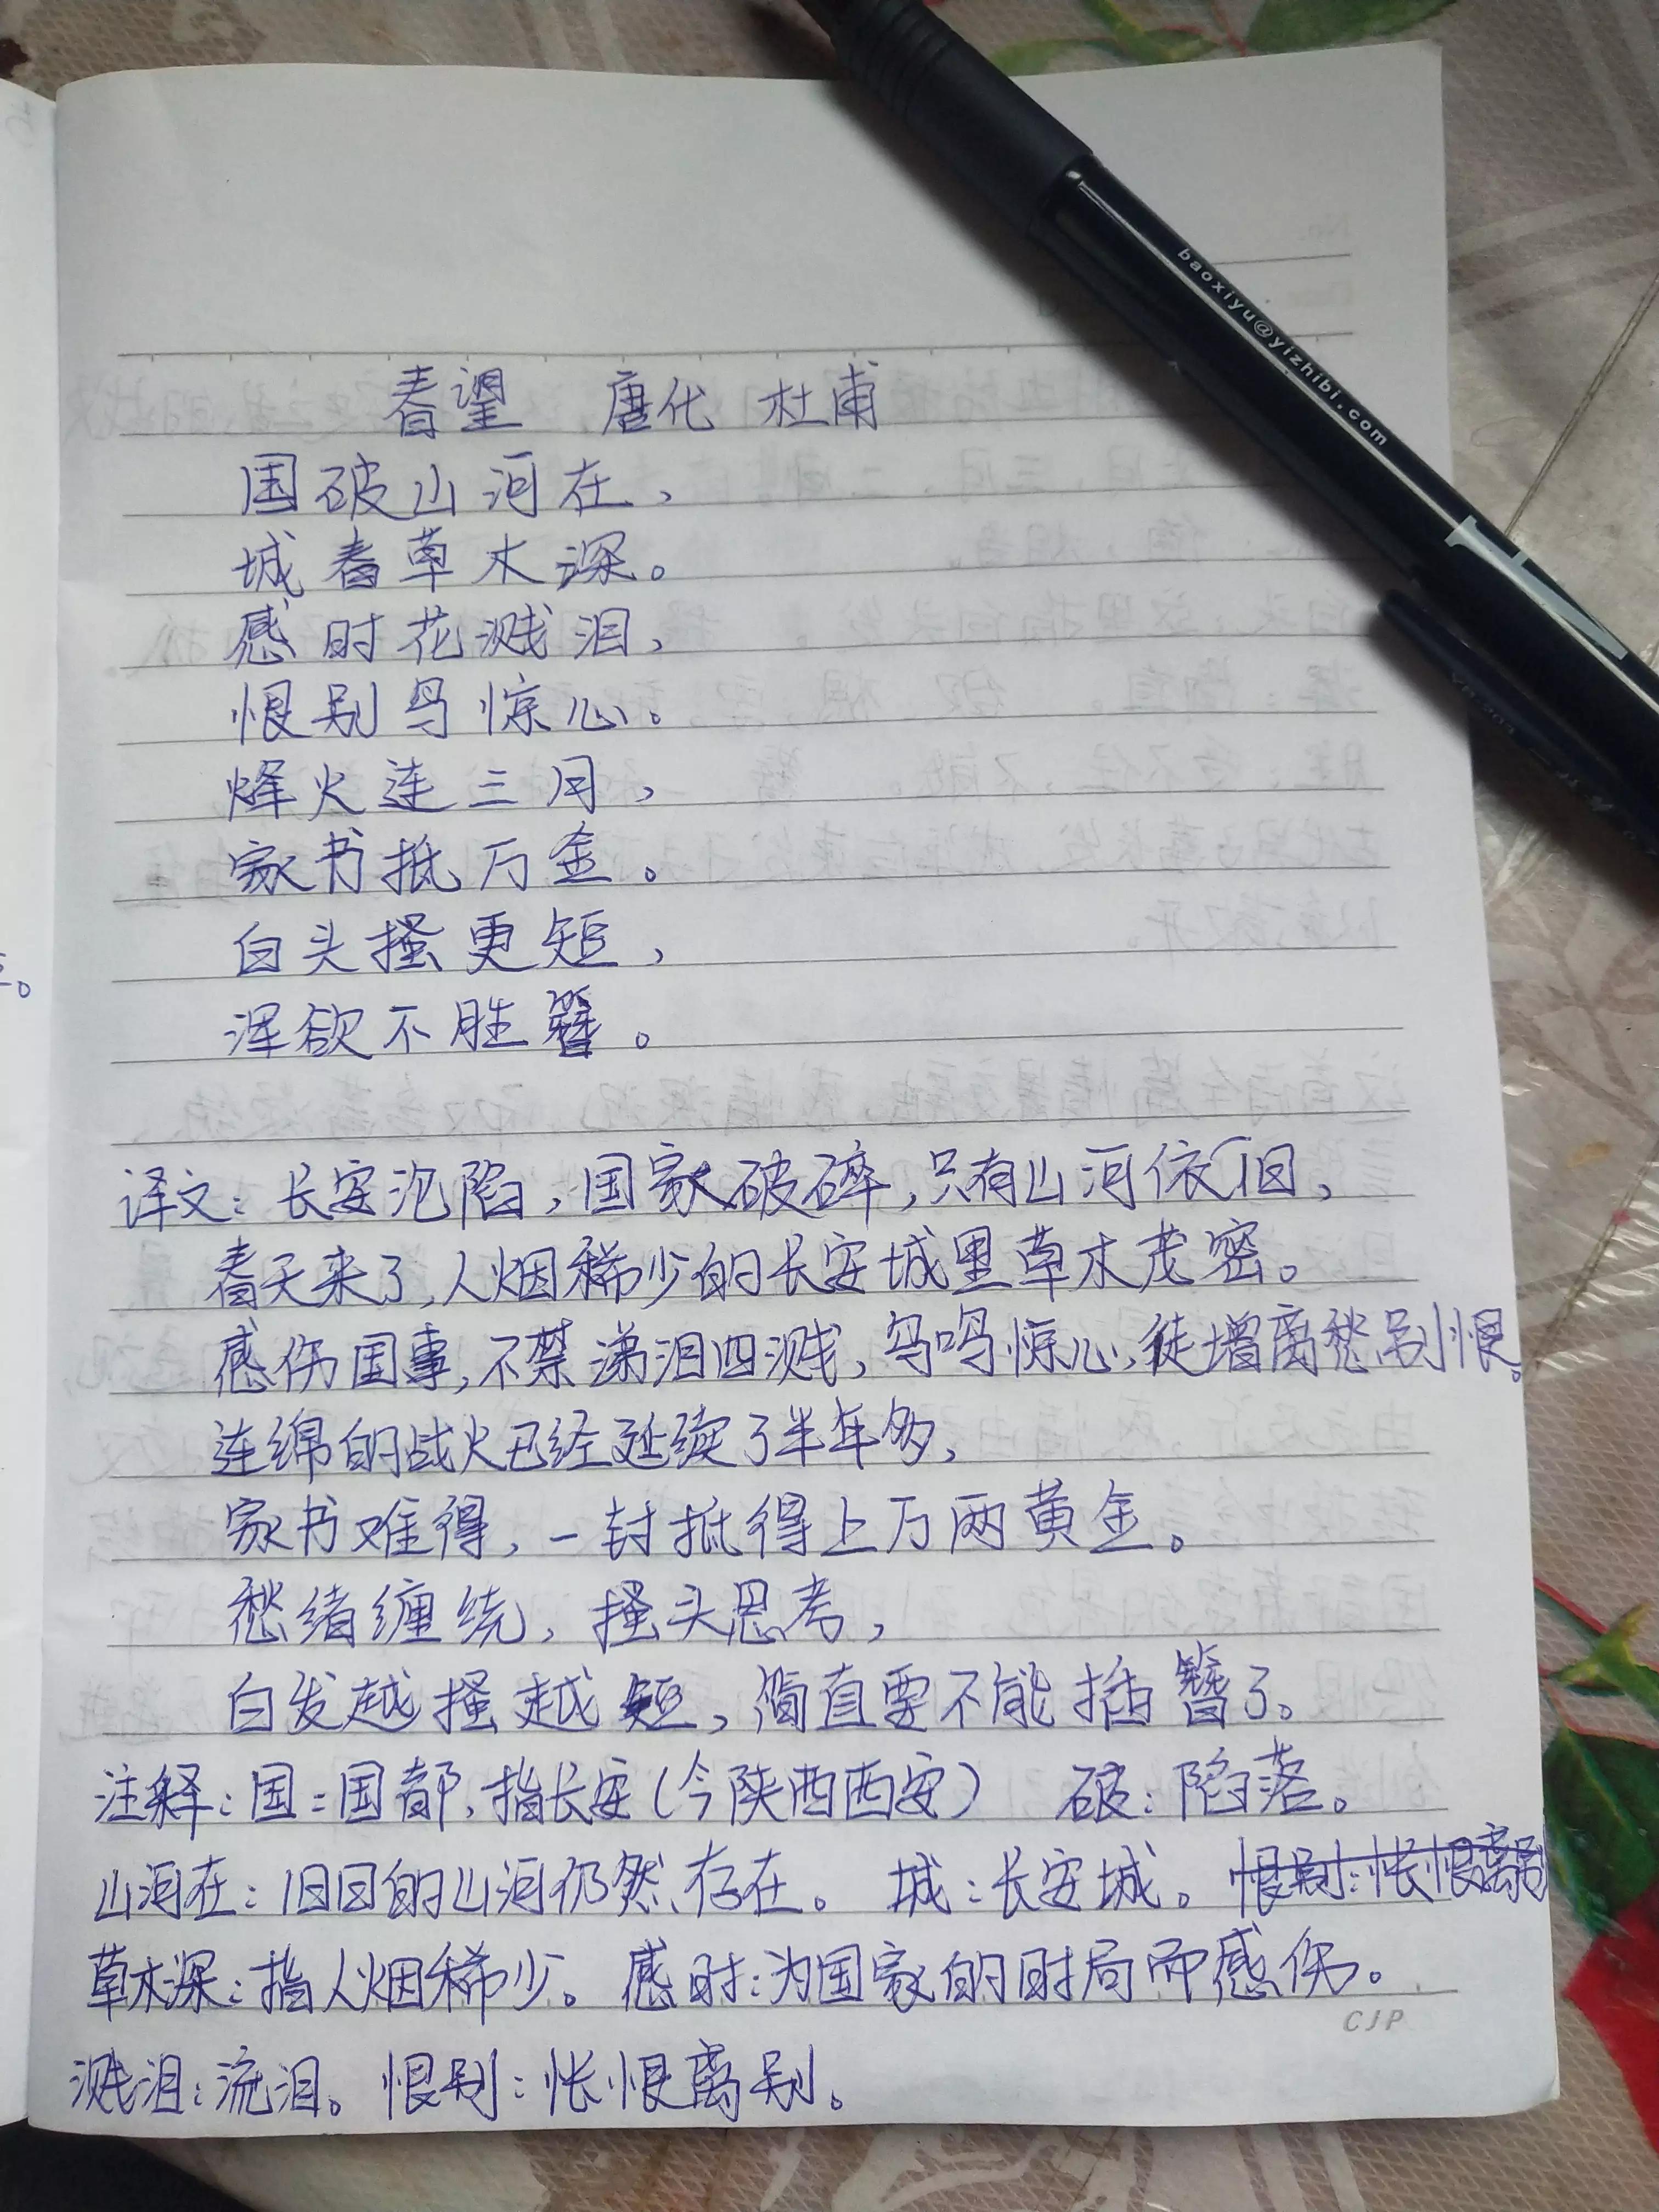 春望 唐代 杜甫
国破山河在，
城春草木深。
感时花溅泪，
恨别鸟惊心。
烽火连三月，
家书抵万金。
白头搔更短，
浑欲不胜簪。
译文：长安沦陷，国家破碎，只有山河依旧，
春天来了，人烟稀少的长安城里草木茂密。
感伤国事，不禁涕泪四溅，鸟鸣惊心，徒增离愁别恨。
连绵的战火已经延续了半年多，
家书难得，一封抵得上万两黄金。
愁绪缠绕，搔头思考，
白发越搔越短，简直要不能插簪了。
注释：国：国都，指长安（今陕西西安） 破：陷落。
山河在：旧日的山河仍然存在。 城：长安城。 恨别：怅恨离别
草木深：指人烟稀少。 感时：为国家的时局而感伤。
溅泪：流泪。 恨别：怅恨离别。
CJP
baoxiyu@yizhibi.com